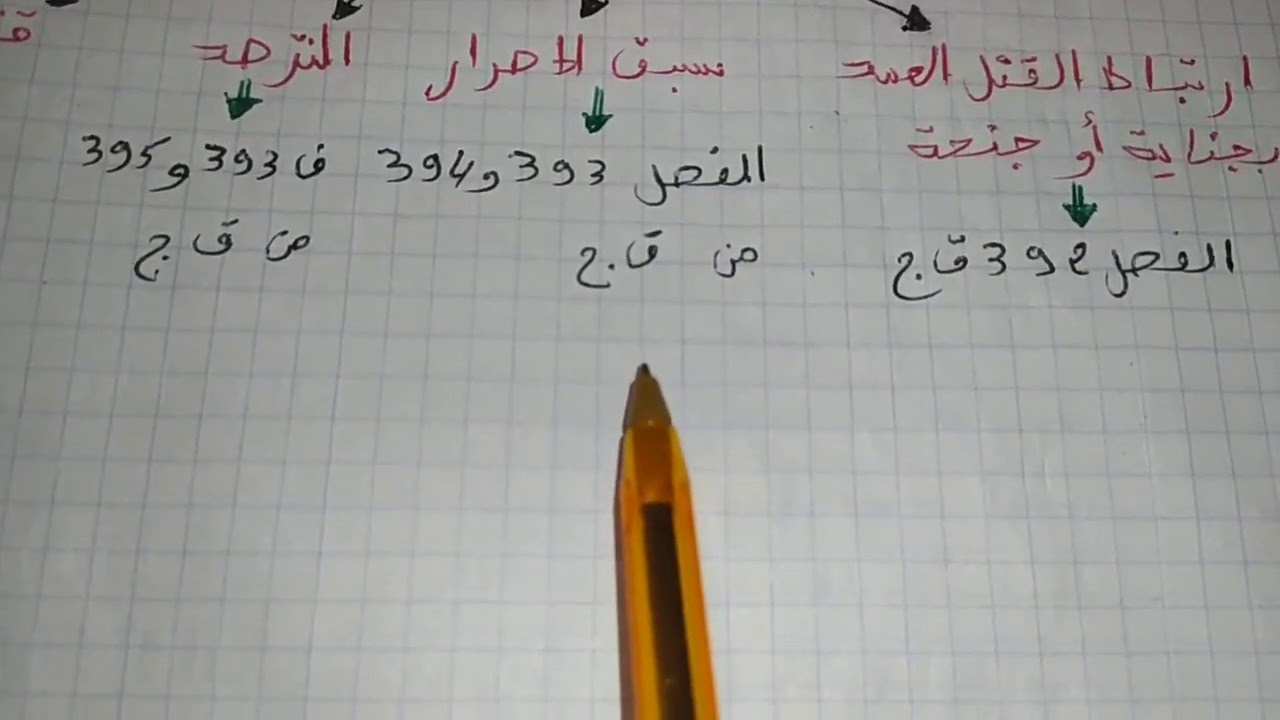 ارتباط القتل العمد
بجناية أو جنحة
الفصل 392 ق ج
سبق الاصرار
الفصل 393 و 394
من ق.ج
الترصد
ف 393 و 395
من ق ج